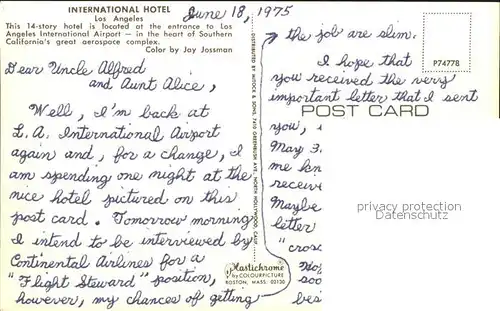 INTERNATIONAL HOTEL
Los Angeles
This 14-story hotel is located at the entrance to Los
Angeles International Airport — in the heart of Southern
California's great aerospace complex.
Color by Joy Jossman
June 18, 1975
Dear Uncle Alfred
and Aunt Alice,
Well, I'm back at
L.A. International Airport
again and, for a change, I
am spending one night at the
nice hotel pictured on this
post card. Tomorrow morning
I intend to be interviewed by
Continental Airlines for a
"Flight Steward" position,
however, my chances of getting
DISTRIBUTED BY MITOCK & SONS, 7410 GREENBUSH AVE., NORTH HOLLYWOOD, CALIF.
Plastichrome®
by COLOURPICTURE
BOSTON, MASS. 02130
P74778
POST CARD
the job are slim.
I hope that
you received the very
important letter that I sent
you,
May 3
me
Maybe
letter
privacy protection
Datenschutz